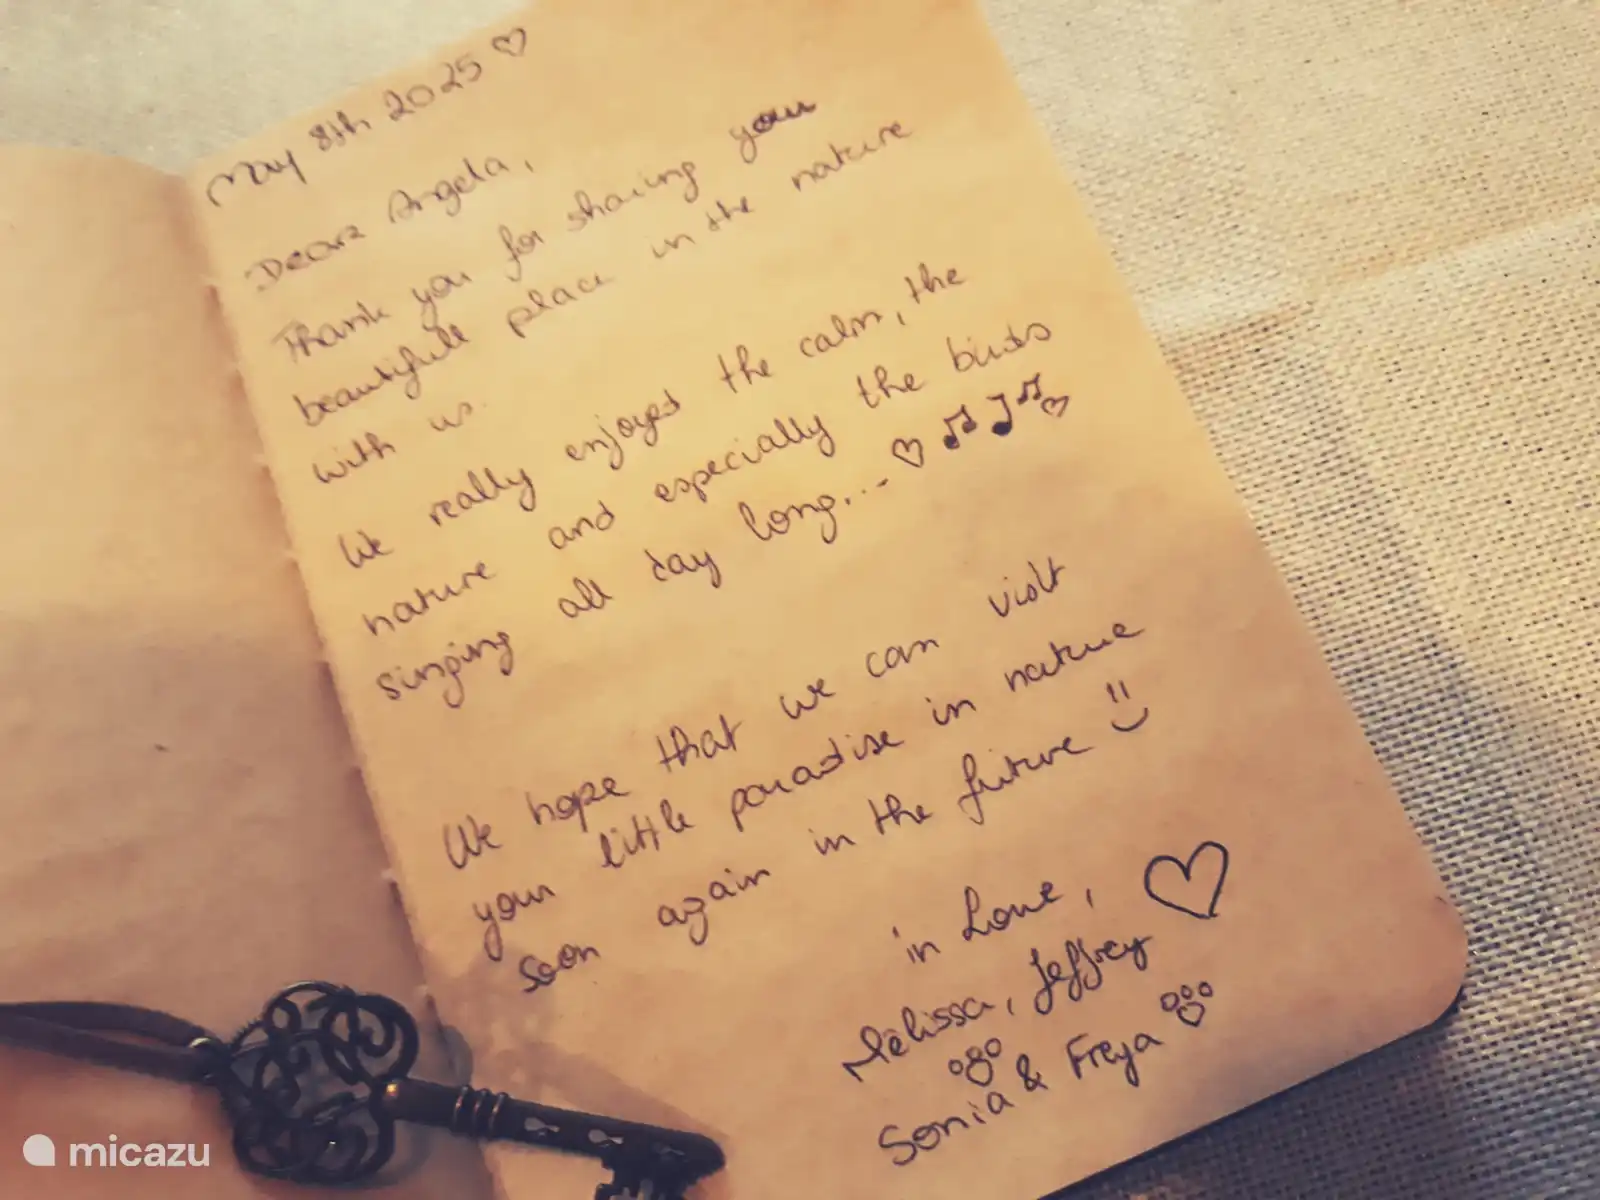 May 8th 2025 ♡
Dear Angela,
Thank you for sharing your
beautifull place in the nature
with us.
We really enjoyed the calm, the
nature and especially the birds
singing all day long... ♡ ♫ ♪ ♫ ♡
We hope that we can visit
your little paradise in nature
soon again in the future :)
in Love, ♡
Mélissa, Jeffrey
Sonia & Freya
micazu